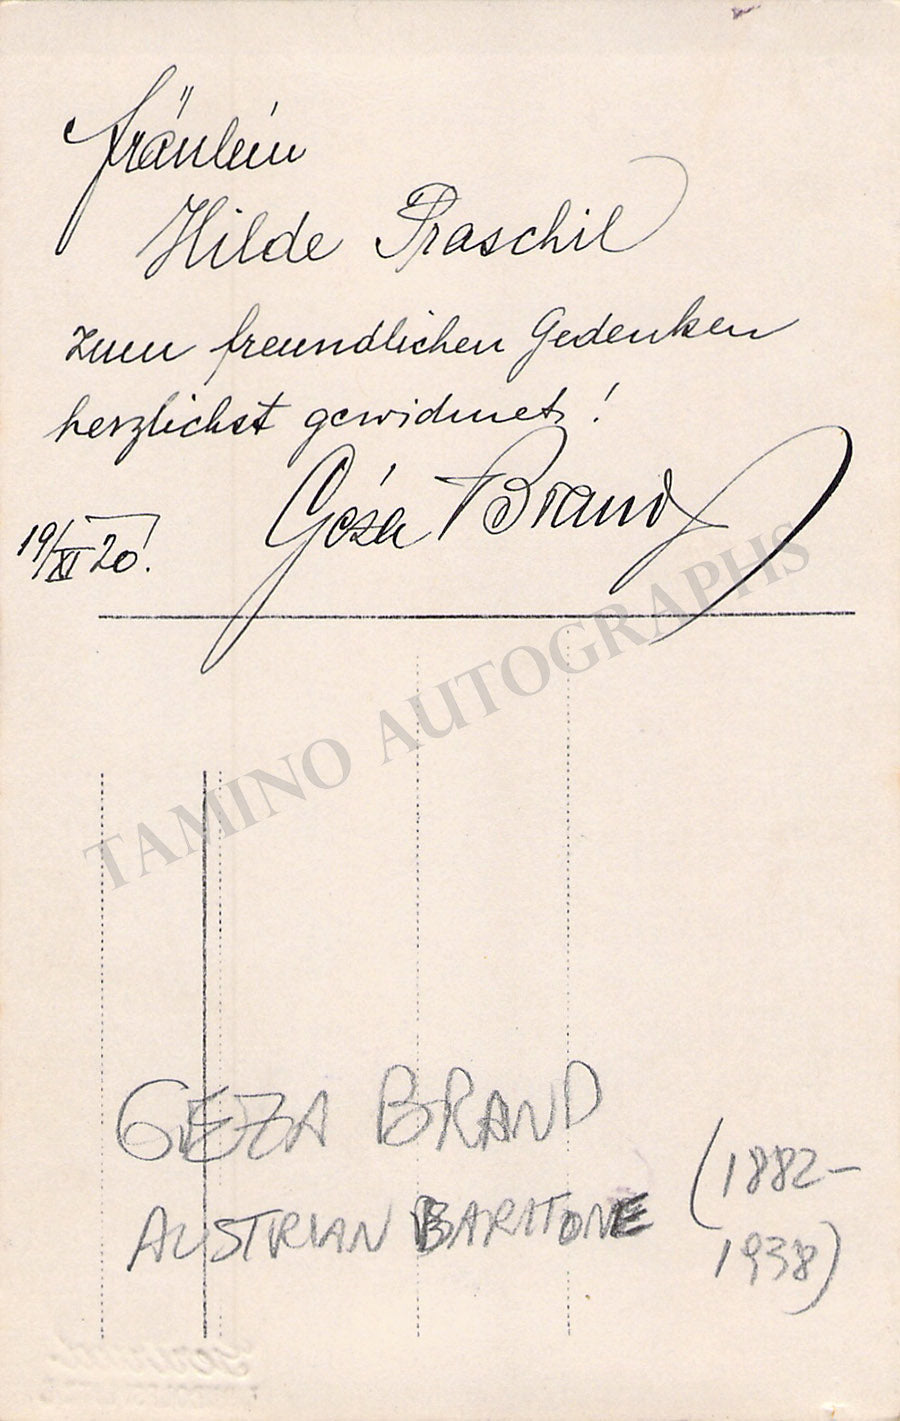 Fräulein
Hilde Praschil
zum freundlichen Gedenken
herzlichst gewidmet!
Géza Brand
19/XI 20!
TAMINO AUTOGRAPHS
GEZA BRAND
AUSTRIAN BARITONE (1882-
1938)